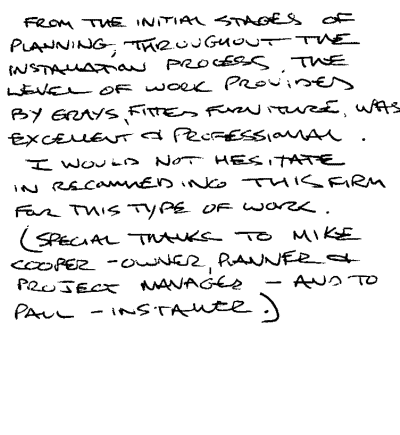 FROM THE INITIAL STAGES OF
PLANNING, THROUGHOUT THE
INSTALLATION PROCESS, THE
LEVEL OF WORK PROVIDED
BY GRAYS FITTED FURNITURE, WAS
EXCELLENT & PROFESSIONAL.
I WOULD NOT HESITATE
IN RECOMMENDING THIS FIRM
FOR THIS TYPE OF WORK.
(SPECIAL THANKS TO MIKE
COOPER - OWNER, PLANNER &
PROJECT MANAGER - AND TO
PAUL - INSTALLER.)